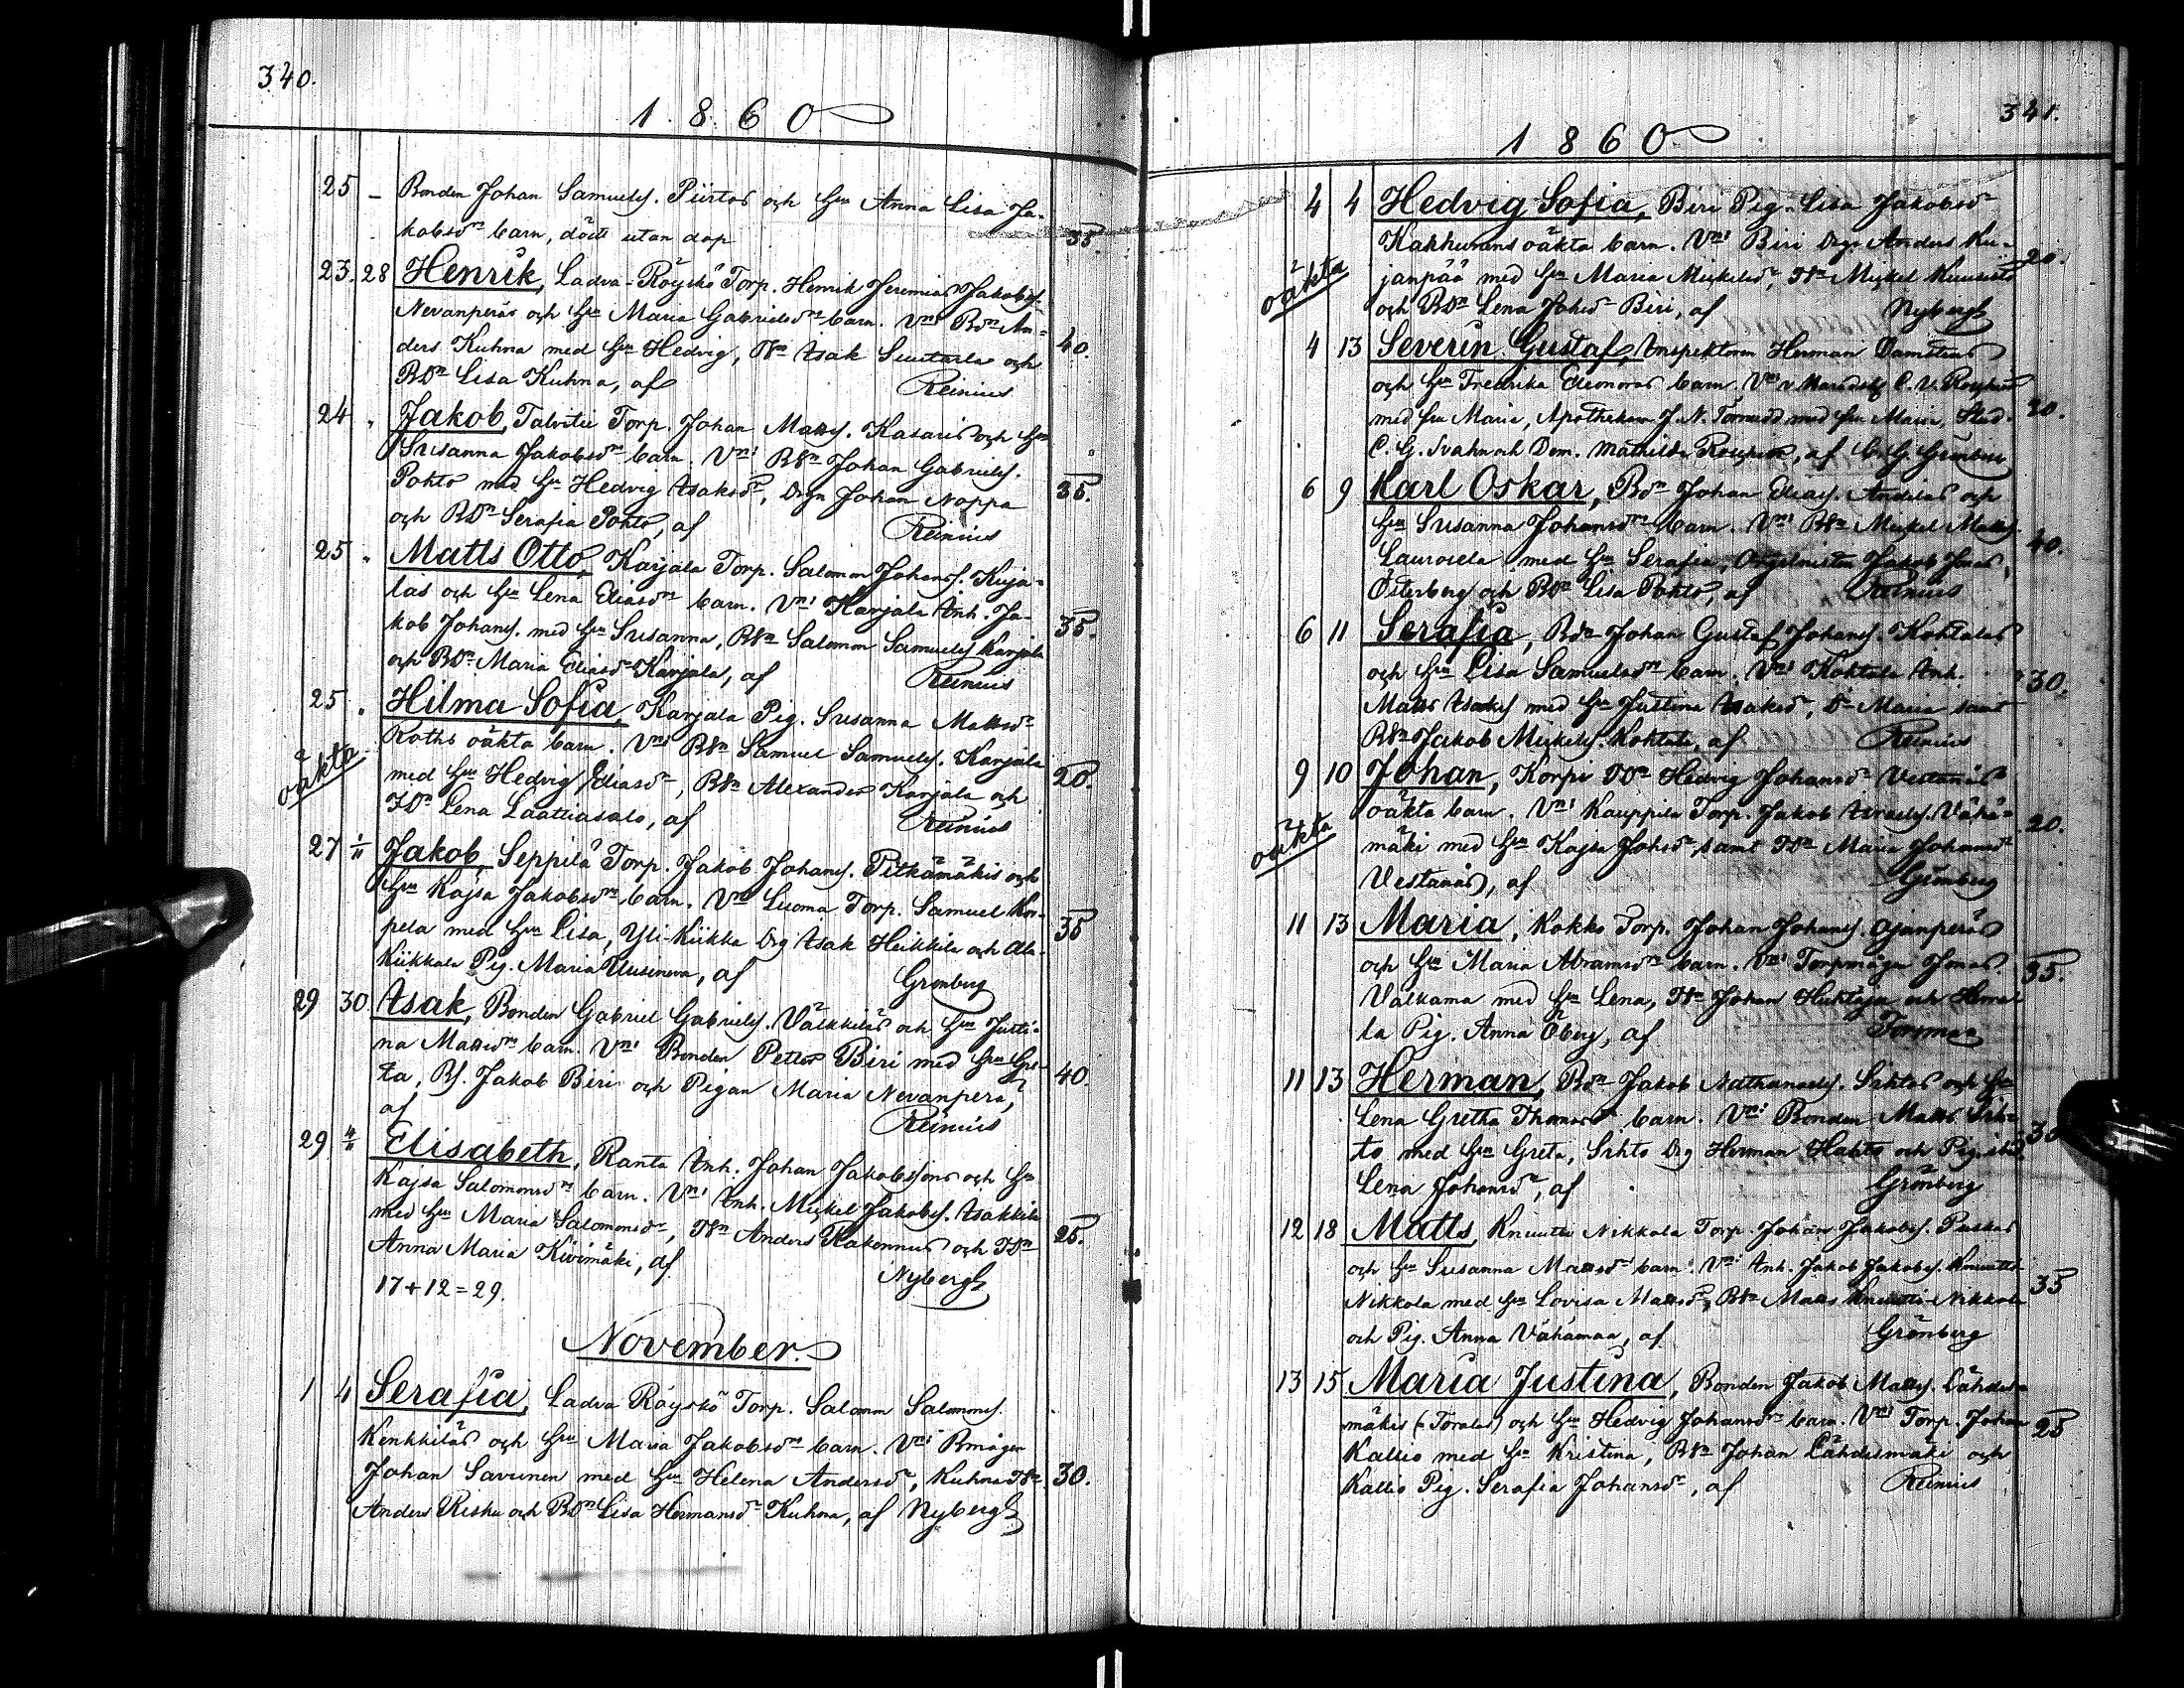 340.
1860
25 – Bonden Johan Samuels. Piirtos och Hu Anna Lisa Ja-
kobsdr barn, död utan dop 35
23. 28 Henrik, Ladva-Röyskö Torp. Henrik Jeremias Jakobs.
Nevanperäs och Hu Maria Gabrielsdrs barn. Vn: Bdn An-
ders Kuhna med Hu Hedvig, 40.
BDn Lisa Kuhna, af Reinius
24 " Jakob, Talvitie Torp. Johan Matts. Kasaris och Hu
Susanna Jakobsdrs barn. Vn: BSn Johan Gabriels.
Pohto med Hu Hedvig Isaksdr, Drgn Johan Noppa 35.
och BDn Serafia Pohto, af Reinius
25 " Matts Otto, Karjala Torp. Salomon Johans. Kuja-
las och Hu Lena Eliasdrs barn. Vn: Karjala Inh. Ja-
kob Johans. med Hu Susanna, BSn Salomon Samuels Karjala 35.
och BDn Maria Eliasdr Karjala, af Reinius
25 " Hilma Sofia, Karjala Pig. Susanna Mattsdr
Koths oäkta barn. Vn: BSn Samuel Samuels. Karjala
oäkta med Hu Hedvig Eliasdr, BSn Alexander Karjala och 20.
TDn Lena Laattiasalo, af Reinius
27 1/11 Jakob, Seppilä Torp. Jakob Johans. Pitkämäkis och
Hu Kajsa Jakobsdrs barn. Vn: Luoma Torp. Samuel Kor-
pela med Hu Lisa, Yli-Kiikka Drg Isak Heikkila och Ala- 35
Kiikkala Pig. Maria Uusineva, af Grönberg
29 30 Isak, Bonden Gabriel Gabriels. Välkkiläs och Hu Justi-
na Mattsdrs barn. Vn: Bonden Petter Biri med Hu Gre-
ta, BS. Jakob Biri och Pigan Maria Nevanperä, 40
af Reinius
29 4/11 Elisabeth, Ranta Inh. Johan Jakobssons och Hu
Kajsa Salomonsdrs barn. Vn: Inh. Mickel Jakobs. Isakkila
med Hu Maria Salomonsdr, TSn Anders Kakonnus och TDn 25.
Anna Maria Kivimäki, af
17+12=29. Nybergh
November.
1 4 Serafia, Ladva Röyskö Torp. Salomon Salomons.
Kenkkiläs och Hu Maria Jakobsdrs barn. Vn: Bmågen
Johan Savunen med Hu Helena Andersdr, Kuhna TSn 30.
Anders Risku och BDn Lisa Hermansdr Kuhna, af Nybergh
341.
1860
4 4 Hedvig Sofia, Biri Pig. Lisa Jakobsdr
Kakkurens oäkta barn. Vn: Biri Drgn Anders Ku- 20.
oäkta janpää med Hu Maria Mickelsdr, TSn Mickel Kuusisto
och BDn Lena Johsdr Biri, af Nybergh
4 13 Severin Gustaf, Inspektoren Herman Damstens
och Hu Fredrika Eleonoras barn. Vn:
med fru Maria, Apothekaren J. N. med fru Maria, Stud. 20.
C. G. Svahn och Dem. Mathilda, af C. G. Grönberg
6 9 Karl Oskar, Bdn Johan Elias. Andilas och
Hu Susanna Johansdrs barn. Vn: BSn Mickel Matts.
Laurosela med Hu Serafia, Orgelnisten Jakob Jonas 40.
Österberg och BDn Lisa Pohto, af Reinius
6 11 Serafia, Bdn Johan Gustaf Johans. Kohtalas
och Hu Lisa Samuelsdrs barn. Vn: Kohtala Inh. 30.
Matts Isaks med Hu Justina Isaksdr, Dr Maria samt
BSn Jakob Mickels. Kohtala, af Reinius
9 10 Johan, Korpi TDn Hedvig Johansdr Vestanäs
oäkta oäkta barn. Vn: Kauppila Torp. Jakob Israels. Vähä- 20.
mäki med Hu Kajsa Johsdr samt TDn Maria Johansdr
Vestanäs, af Grönberg
11 13 Maria, Kokko Torp. Johan Johans. Ojanperäs
och Hu Maria Abramsdrs barn. Vn: Torpmågen Jonas 35.
Valkama med Hu Lena, TSn Johan Huhtaja och
la Pig. Anna Öberg, af Forsman
11 13 Herman, Bdn Jakob Nathanaels. Sihtos och Hu
Lena Gretha Thomasdrs barn. Vn: Bonden Matts Sih-
to med Hu Greta, Sihto Drg Herman Hahto och Pig. ibid. 30
Lena Johansdr, af Grönberg
12 18 Matts, Knuutti Nikkola Torp. Johan Jakobs. Puskas
och Hu Susanna Mattsdrs barn. Vn: Inh. Jakob Jakobs. Knuutti-
Nikkola med Hu Lovisa Mattsdr, BSn Matts Knuutti-Nikkola 35
och Pig. Anna Vähämaa, af Grönberg
13 15 Maria Justina, Bonden Jakob Matts. Lähdes-
mäkis (-Toralas) och Hu Hedvig Johansdrs barn. Vn: Torp. Johan 25
Kallio med Hu Kristina, BSn Johan Lähdesmäki och
Kallio Pig. Serafia Johansdr, af Reinius